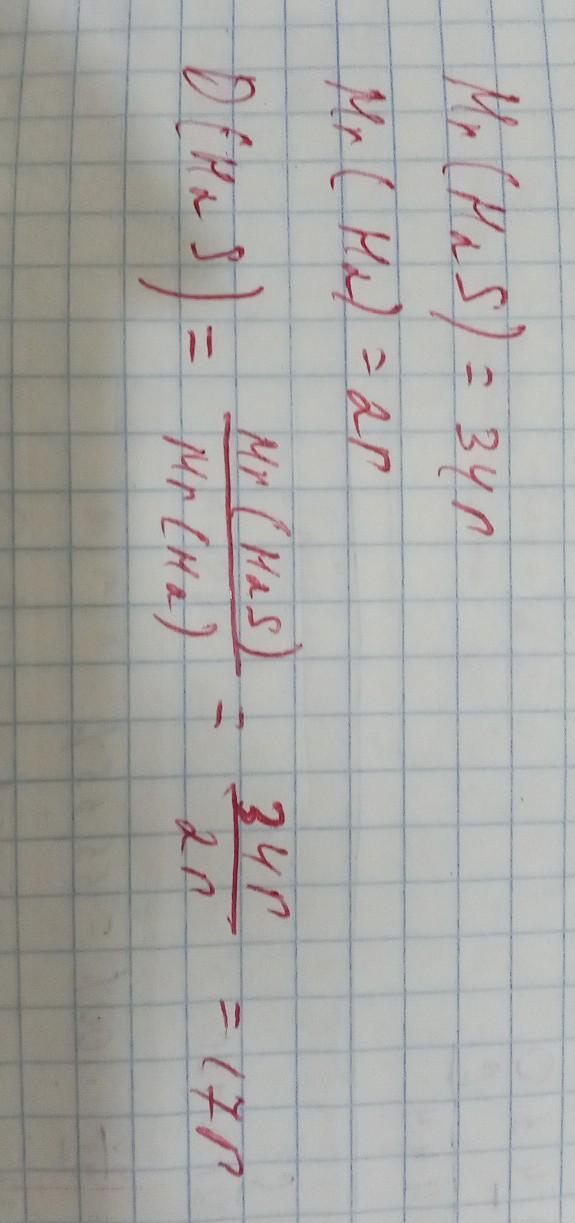 Mr(H₂S) = 34г
Mr(H₂) = 2г
D(H₂S) = Mr(H₂S) / Mr(H₂) = 34г / 2г = 17г